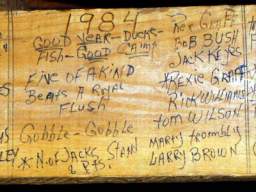 1984
GOOD YEAR - DUCKS -
FISH - GOOD CAMP
FIVE OF A KIND
BEATS A ROYAL
FLUSH
Gobble - Gobble
* N. OF JACKS STAN
& PTS.
REX GRAFF
BOB BUSH
JACK KEYS
REXIE GRAFF
RICK WILLIAMS
TOM WILSON
MARTY
LARRY BROWN
LEY